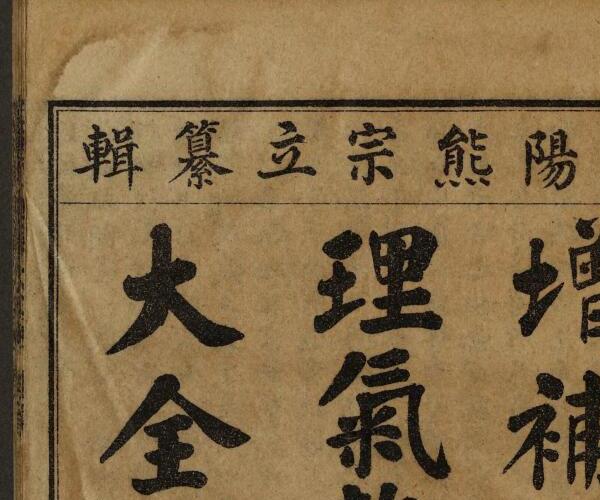 陽熊宗立纂輯
增補
理氣
大全